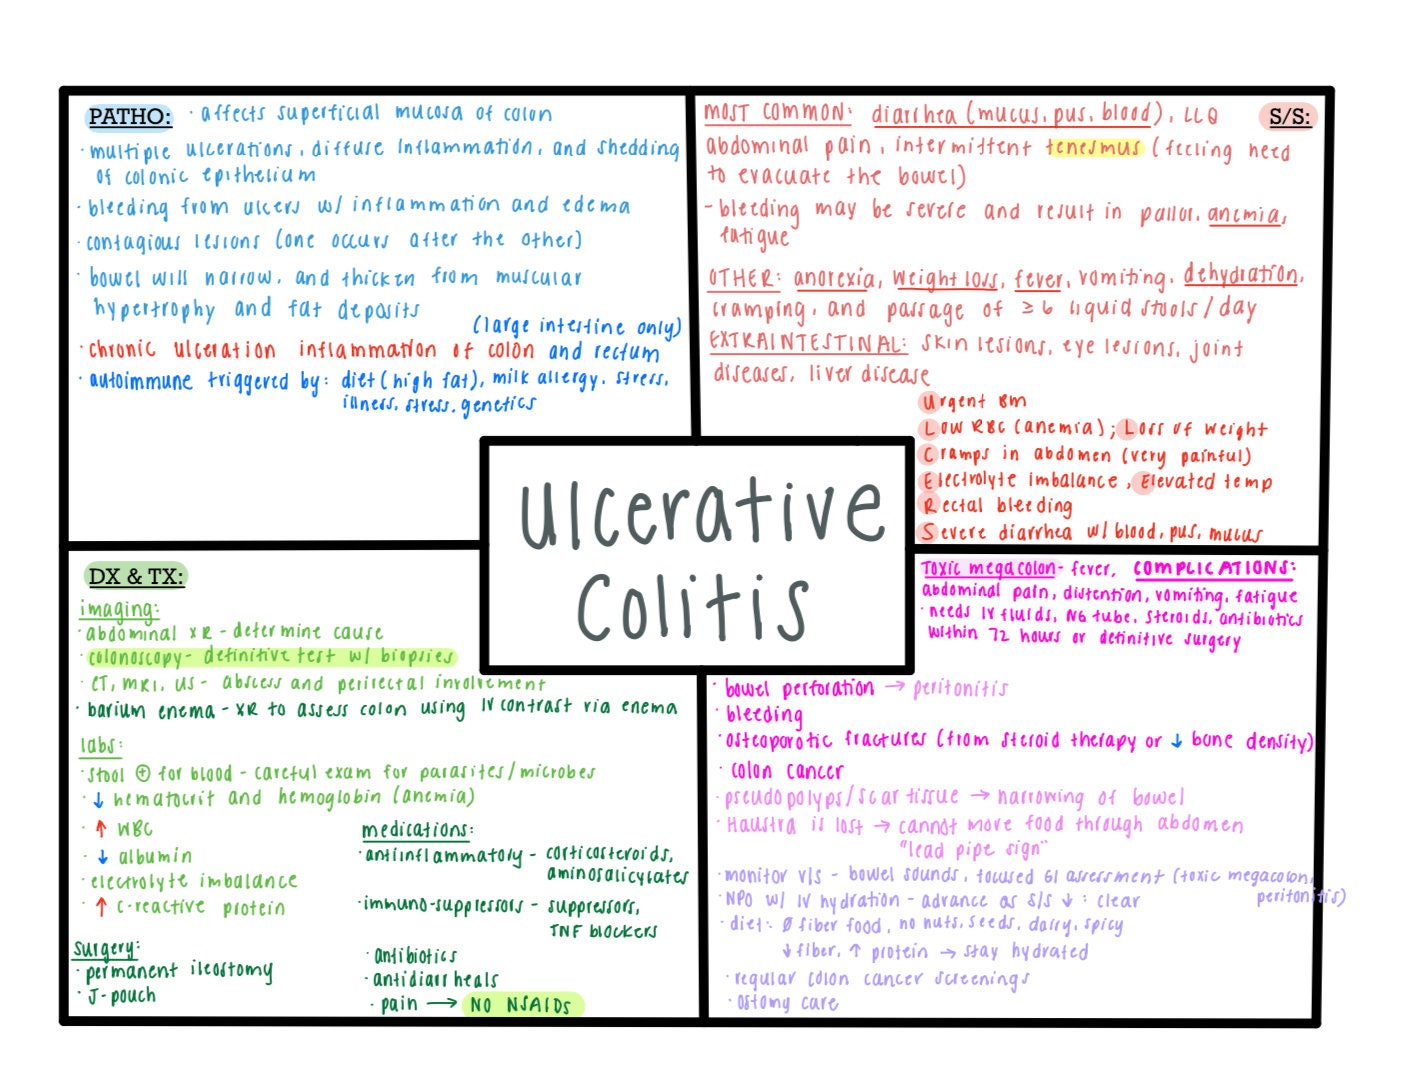 PATHO: · affects superficial mucosa of colon
· multiple ulcerations, diffuse inflammation, and shedding
of colonic epithelium
· bleeding from ulcers w/ inflammation and edema
· contagious lesions (one occurs after the other)
· bowel will narrow, and thicken from muscular
hypertrophy and fat deposits
(large intestine only)
· chronic ulceration inflammation of colon and rectum
· autoimmune triggered by: diet (high fat), milk allergy, stress,
illness, stress, genetics
S/S:
MOST COMMON: diarrhea (mucus, pus, blood), LLQ
abdominal pain, intermittent tenesmus (feeling need
to evacuate the bowel)
- bleeding may be severe and result in pallor, anemia,
fatigue
OTHER: anorexia, weight loss, fever, vomiting, dehydration,
cramping, and passage of ≥ 6 liquid stools/day
EXTRAINTESTINAL: skin lesions, eye lesions, joint
diseases, liver disease
Urgent BM
Low RBC (anemia); Loss of weight
Cramps in abdomen (very painful)
Electrolyte imbalance, Elevated temp
Rectal bleeding
Severe diarrhea w/ blood, pus, mucus
Ulcerative
Colitis
DX & TX:
imaging:
· abdominal XR - determine cause
· colonoscopy - definitive test w/ biopsies
· CT, MRI, US - abscess and perirectal involvement
· barium enema - XR to assess colon using IV contrast via enema
labs:
· stool ⊕ for blood - careful exam for parasites/microbes
· ↓ hematocrit and hemoglobin (anemia)
· ↑ WBC
· ↓ albumin
· electrolyte imbalance
· ↑ C-reactive protein
surgery:
· permanent ileostomy
· J-pouch
medications:
· antiinflammatory - corticosteroids,
aminosalicylates
· immuno-suppressors - suppressors,
TNF blockers
· antibiotics
· antidiarrheals
· pain → NO NSAIDs
COMPLICATIONS:
Toxic megacolon - fever,
abdominal pain, distention, vomiting, fatigue
· needs IV fluids, NG tube, steroids, antibiotics
within 72 hours or definitive surgery
· bowel perforation → peritonitis
· bleeding
· osteoporotic fractures (from steroid therapy or ↓ bone density)
· colon cancer
· pseudopolyps/scar tissue → narrowing of bowel
· Haustra is lost → cannot move food through abdomen
"lead pipe sign"
· monitor v/s - bowel sounds, focused GI assessment (toxic megacolon,
peritonitis)
· NPO w/ IV hydration - advance as s/s ↓ : clear
· diet: Ø fiber food, no nuts, seeds, dairy, spicy
↓ fiber, ↑ protein → stay hydrated
· regular colon cancer screenings
· ostomy care